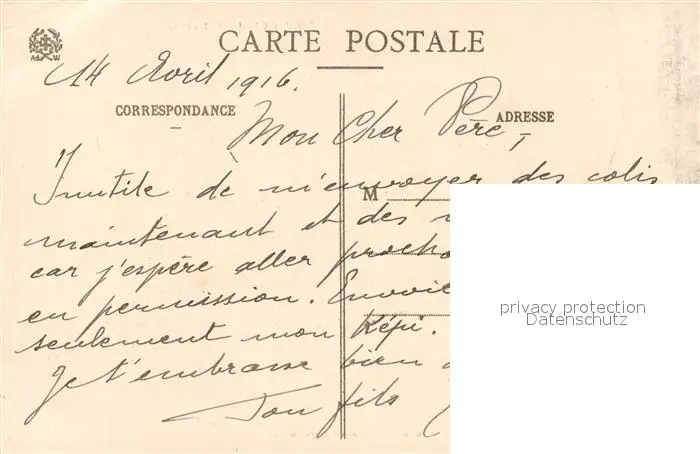 CARTE POSTALE
14 Avril 1916.
CORRESPONDANCE
ADRESSE
Mon Cher Père,
Inutile de m'envoyer des colis
M
maintenant et des
car j'espère aller
en permission.
seulement mon Képi.
Je t'embrasse bien
Ton fils
privacy protection
Datenschutz